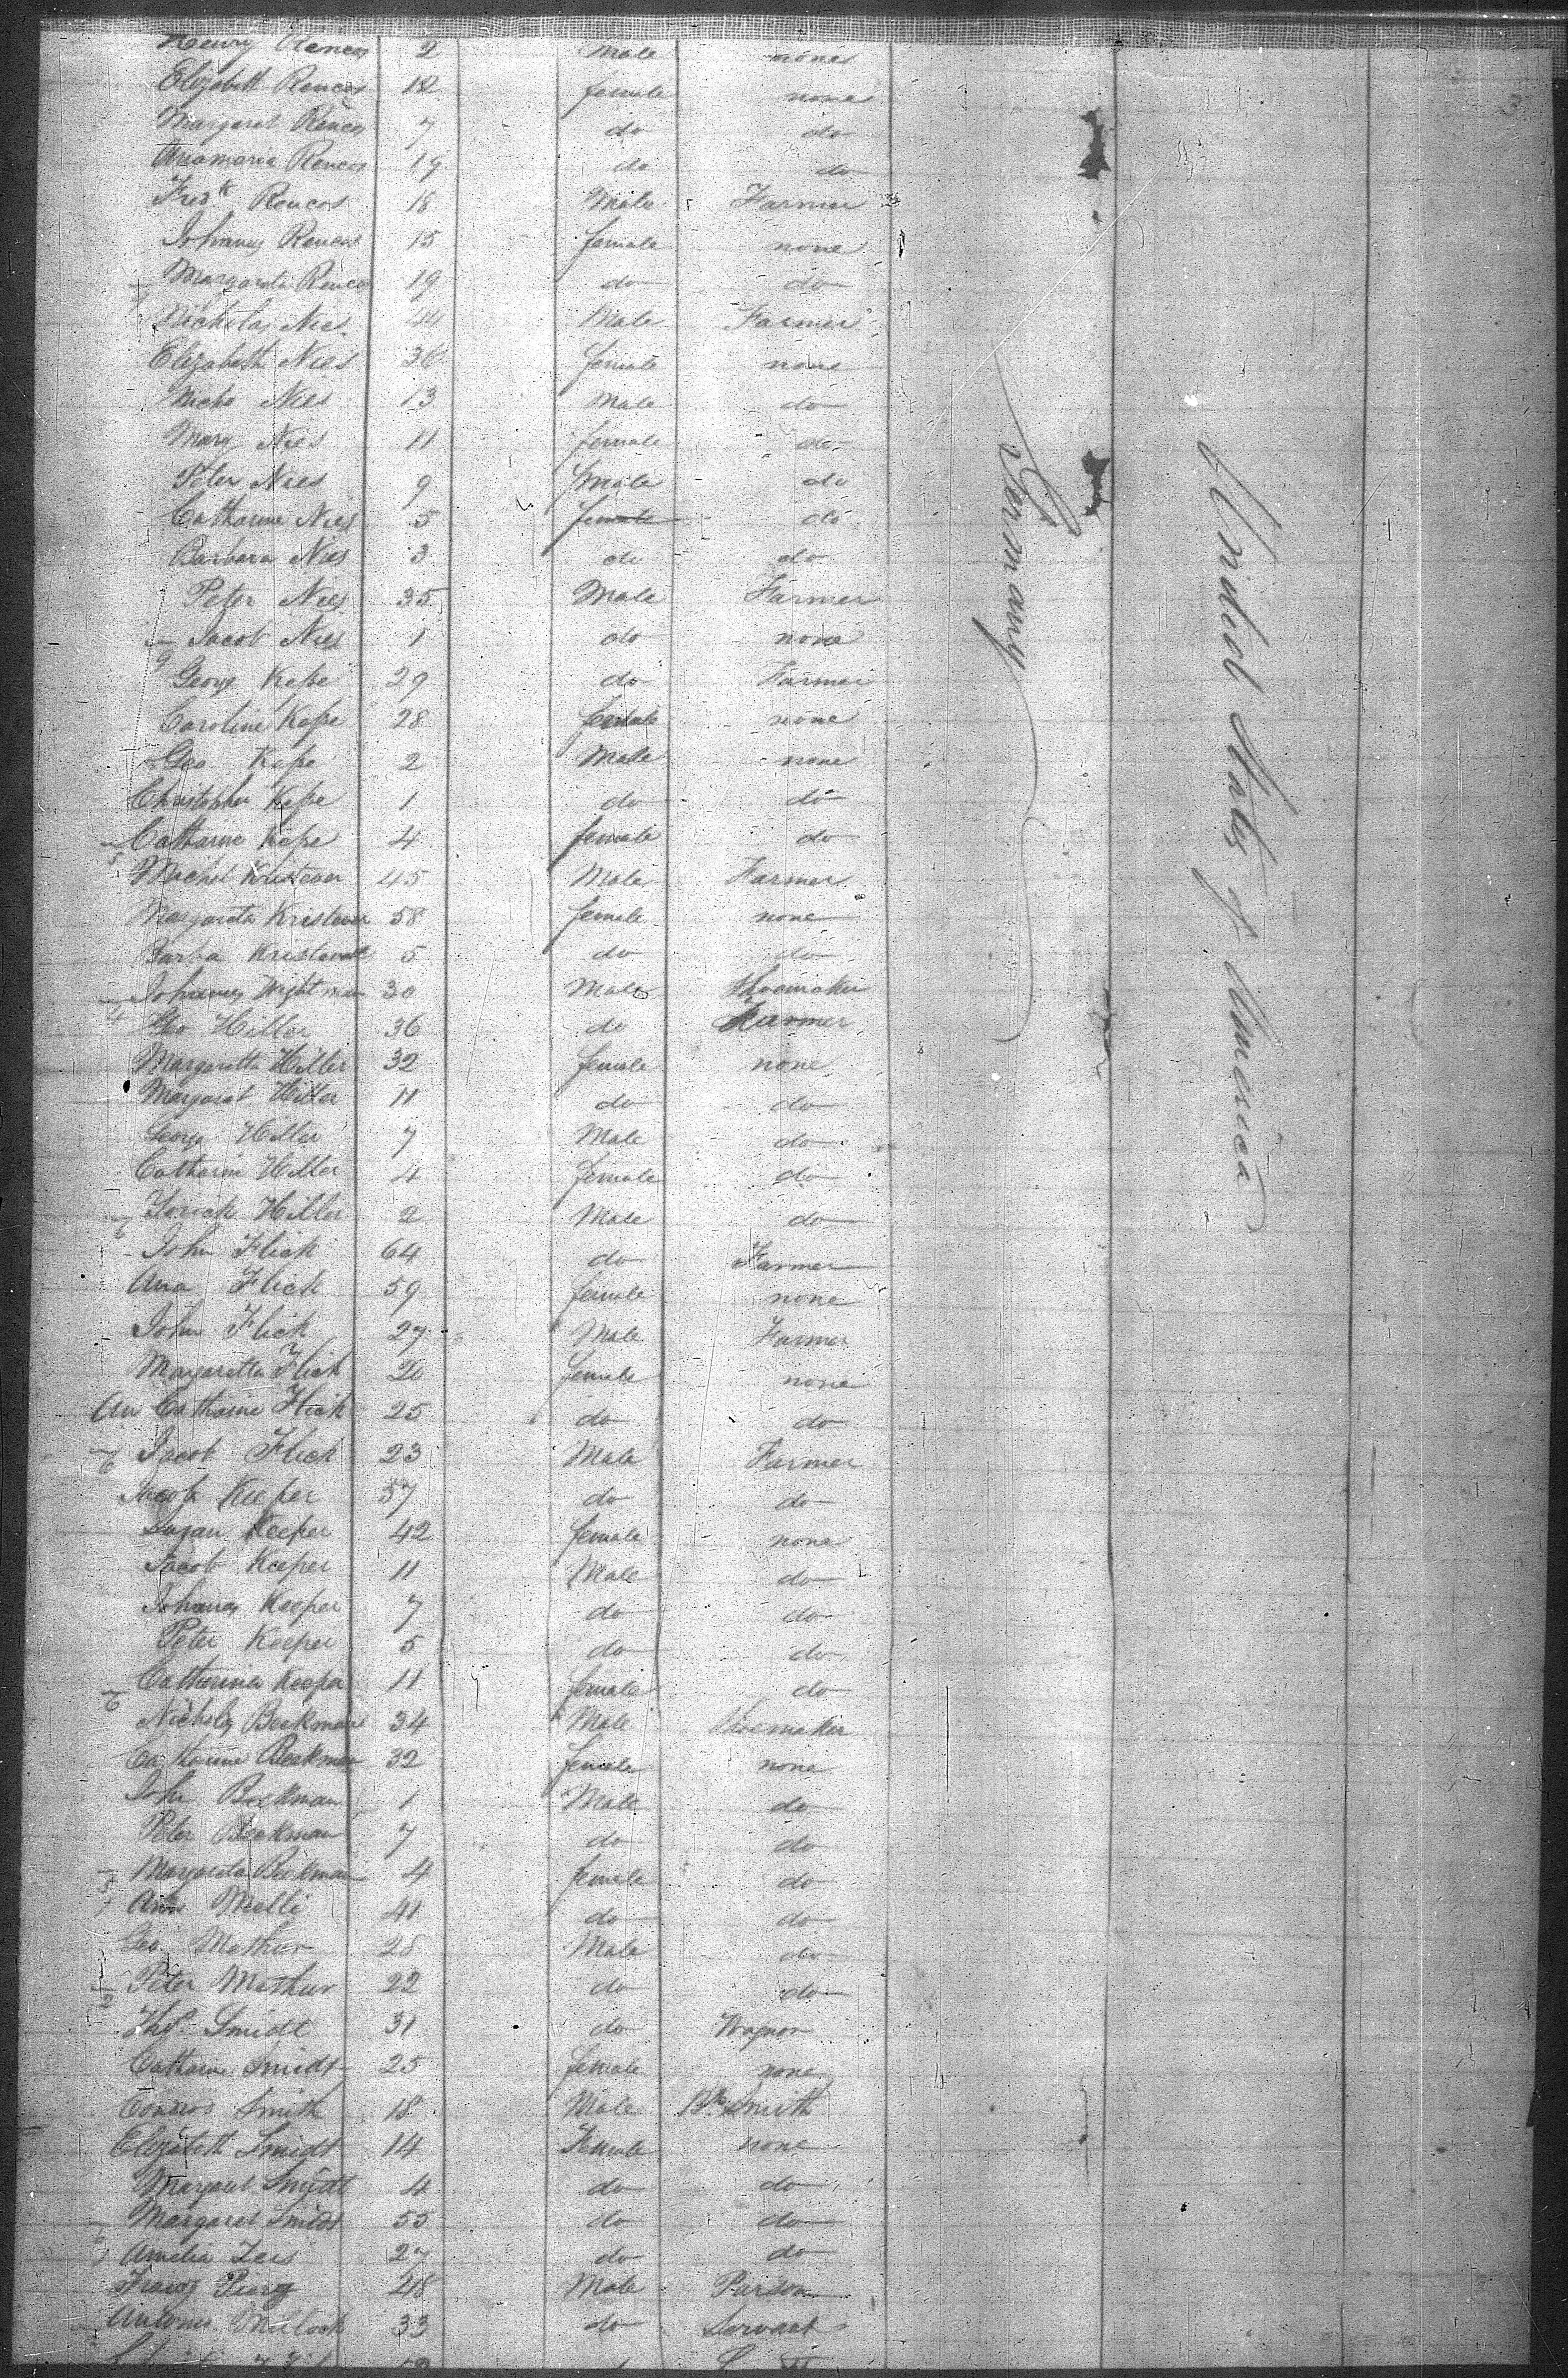 Henry Rencos 2 Male none
Elizabeth Rencos 12 female none
Margaret Rencos 7 do do
Anamaria Rencos 19 do do
Fredk Rencos 18 Male Farmer
Johanes Rencos 15 female none
Margareta Rencos 19 do do
Nicholas Nies 44 Male Farmer
Elizabeth Nies 36 female none
Nicho Nies 13 Male do
Mary Nies 11 female do
Peter Nies 9 male do
Catharine Nies 5 female do
Barbara Nies 3 do do
Peter Nies 35 Male Farmer
Jacob Nies 1 do none
9
George Kepe 29 do Farmer
Caroline Kepe 28 female none
Geo Kepe 2 Male none
Christopher Kepe 1 do do
Catharine Kepe 4 female do
5
Michel Kristever 45 Male Farmer
Margareta Kristever 58 female none
Barba 5 do do
Johanes Wightman 30 Male Shoemaker
4
Geo Hiller 36 do Farmer
Margaretta Hiller 32 female none
Margaret Hiller 11 do do
George Hiller 7 Male do
Catharin Hiller 4 female do
Hiller 2 Male do
6
John Flick 64 do Farmer
Ana Flick 59 female none
John Flick 27 Male Farmer
Margaretta Flick 20 female none
An Catharine Flick 25 do do
Jacob Flick 23 Male Farmer
6
Jacob Keeper 57 do do
Susan Keeper 42 female none
Jacob Keeper 11 Male do
Johanes Keeper 7 do do
Peter Keeper 5 do do
Catherina Keeper 11 female do
6
Nicholas Beekman 34 Male Shoemaker
Catharine Beekman 32 female none
John Beekman 1 Male do
Peter Beekman 7 do do
Margareta Beekman 4 female do
5
Ann Melli 41 do do
Geo Mathur 28 Male do
Peter Mathur 22 do do
2
Thos Smidt 31 do Wagnor
Catharine Smidt 25 female none
Smith 18 Male Bk Smith
Elizabeth Smidt 14 Female none
Margaret Smidt 4 do do
Margaret Smidt 55 do do
Amelia Zeis 27 do do
48 Male Parson
Antones 33 do Servant
Germany
United States of America
3